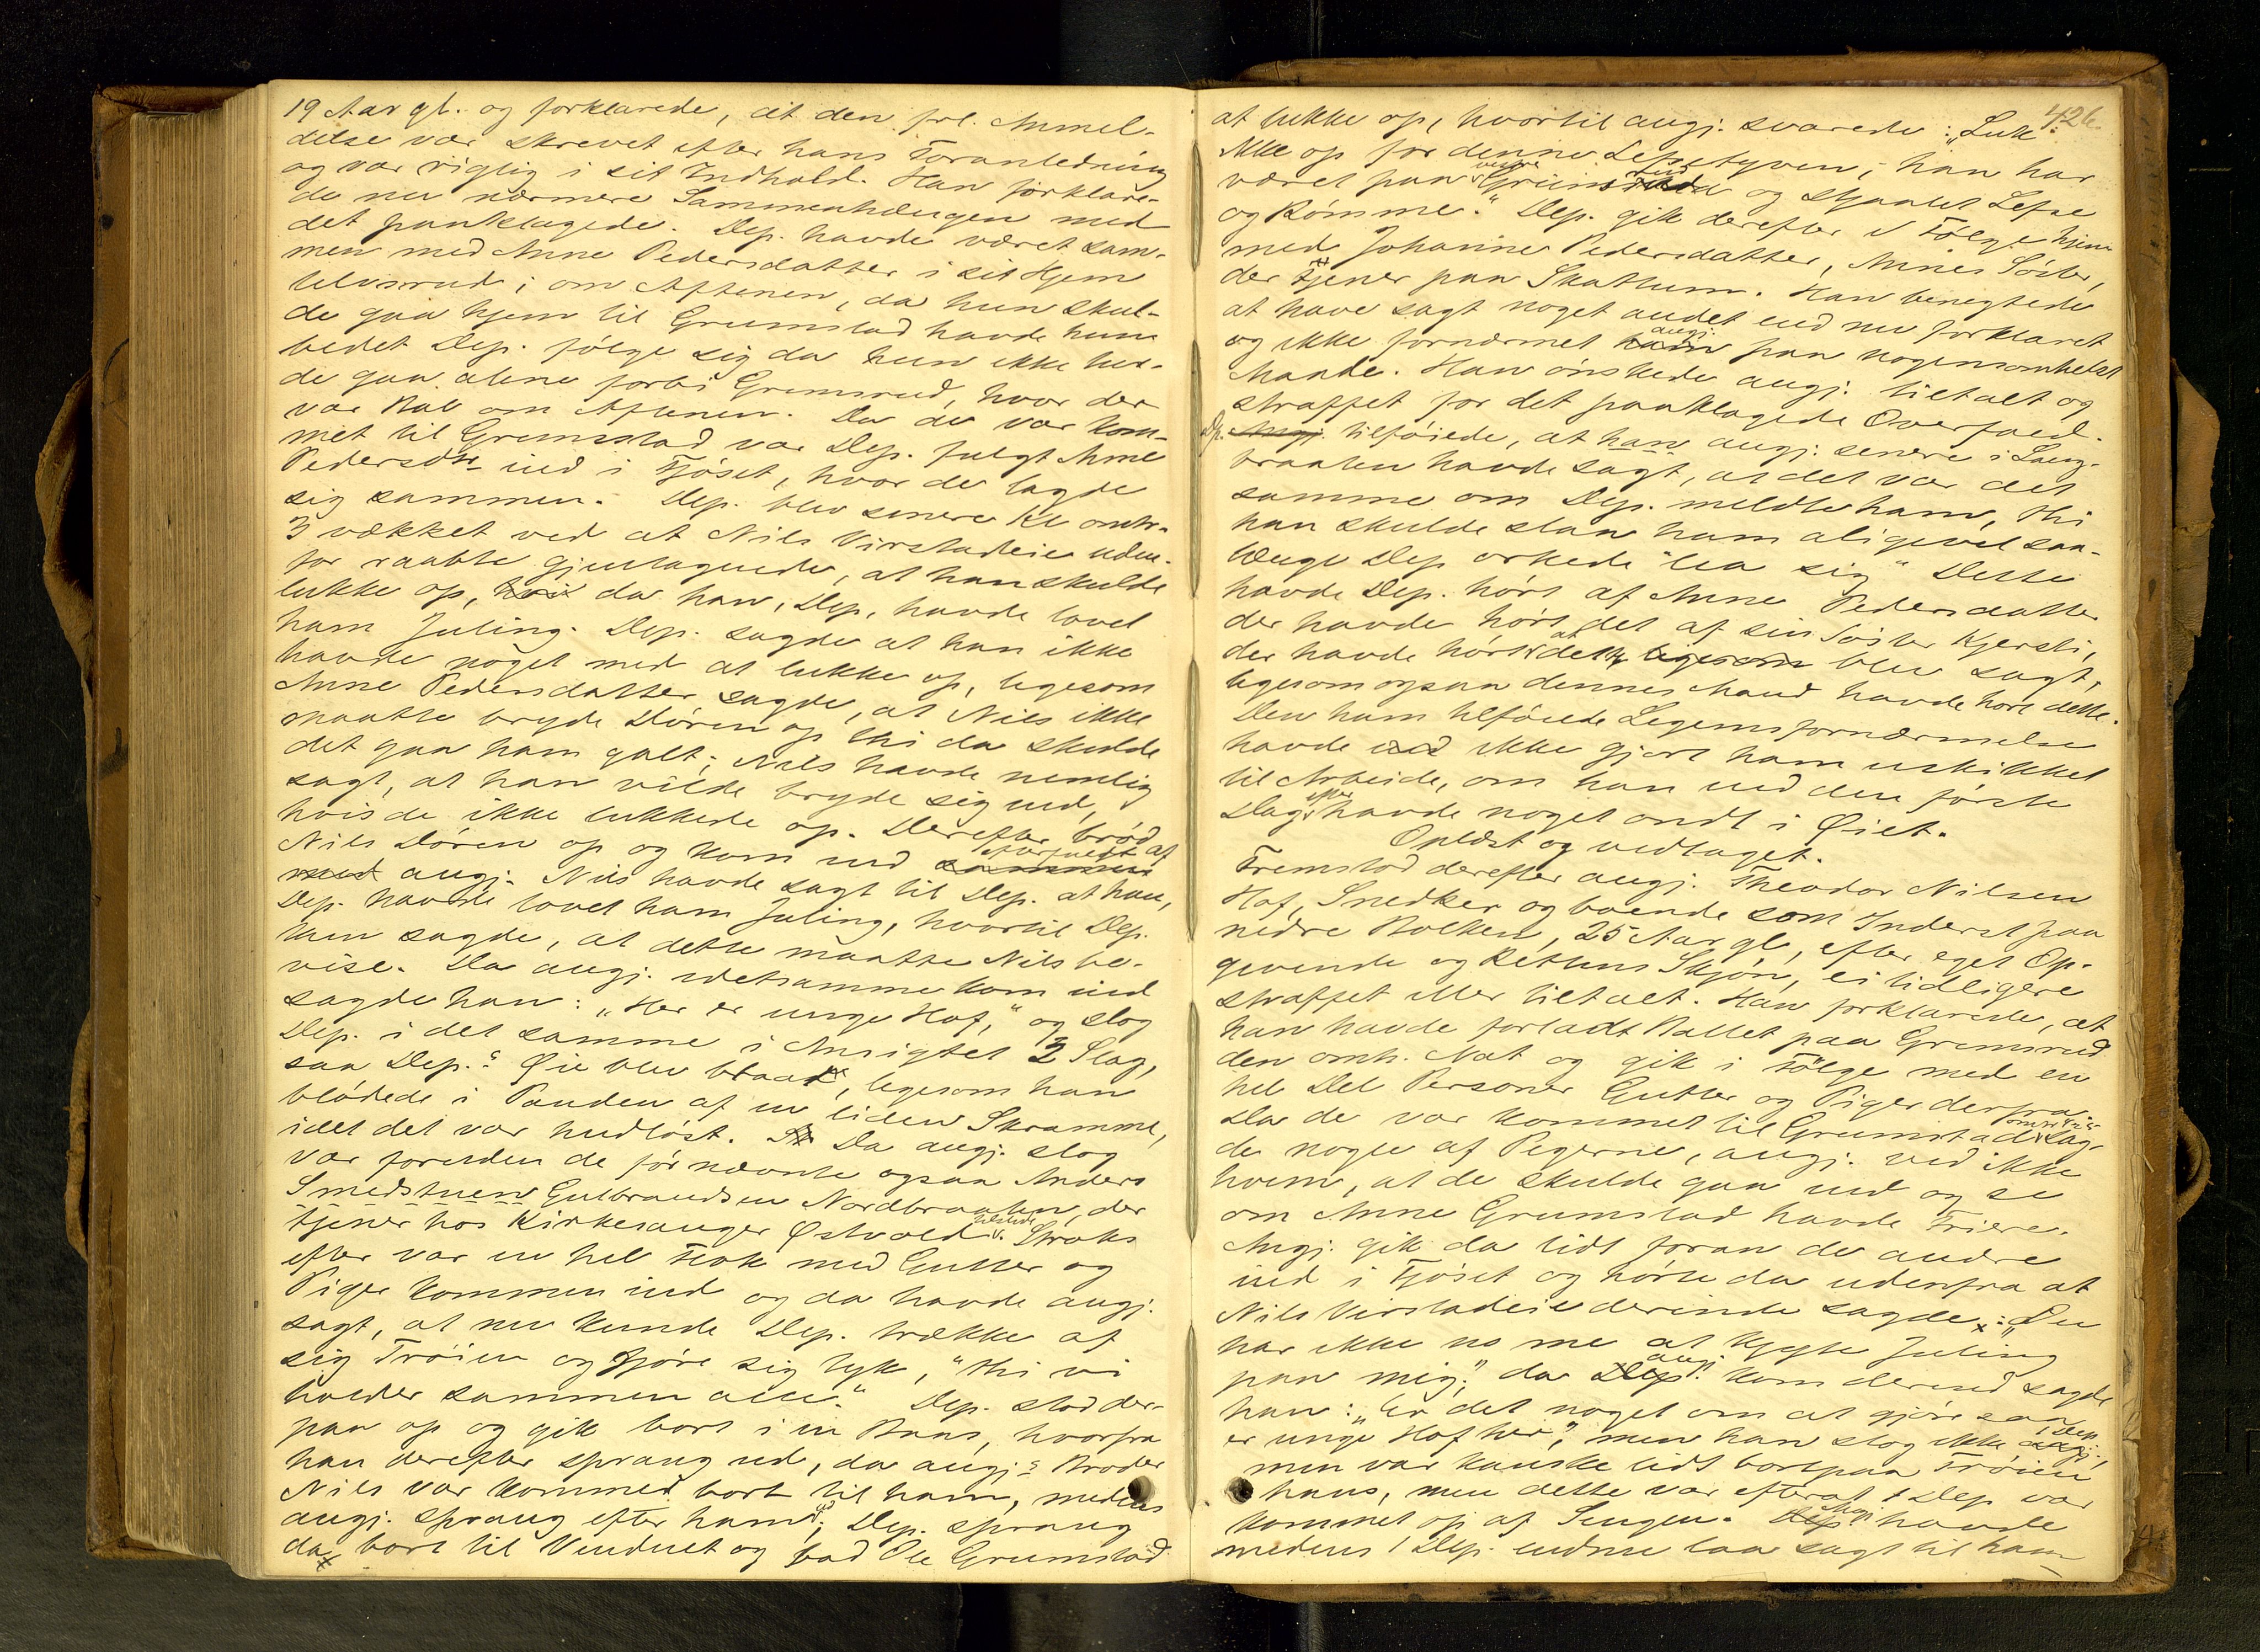 19 Aar gl. og forklarede, at den frl. Anmel-
delse var skrevet efter hans Foranledning
og var rigtig i sit Indhold. Han forklare-
de nu nærmere Sammenhængen med
det paaklagede. Dep. havde været sam-
men med Anne Pedersdatter i sit Hjem
; om Aftenen, da hun skul-
de gaa hjem til Grumstad havde hun
bedet Dep. følge sig da hun ikke tur-
de gaa alene forbi Grimsrud, hvor der
var Bal om Aftenen. Da de var kom-
met til Grumstad var Dep. fulgt Anne
Pedersdtr ind i Fjøset, hvor de lagde
sig sammen. Dep. blev senere Kl omtr.
3 vækket ved at Nils Virstadeie uden-
for raabte gjentagende, at han skulde
lukke op, da han, Dep. havde lovet
ham Juling. Dep. sagde at han ikke
havde noget med at lukke op, ligesom
Anne Pedersdatter sagde, at Nils ikke
maatte bryde Døren op thi da skulde
det gaa ham galt; Nils havde nemlig
sagt, at han vilde bryde sig ind,
hvis de ikke lukkede op. Derefter brød
Nils Døren op og kom ind forfulgt af
angj. Nils havde sagt til Dep. at han,
Dep. havde lovet ham Juling, hvortil Dep.
kun sagde, at dette maatte Nils be-
vise. Da angj. idetsamme kom ind
sagde han: „Her er unge Hof,“ og slog
Dep. i det samme i Ansigtet 2 Slag,
saa Dep.s Øie blev blaat, ligesom han
blødede i Panden af en liden Skramme,
idet det var hudløst. Da angj. slog
var foruden de før nævnte ogsaa Anders
Smedstuen Gulbrandsen Nordbraaten, der
tjener hos Kirkesanger Østvold tilstede. Straks
efter var en hel Flok med Gutter og
Piger kommen ind og da havde angj.
sagt, at nu kunde Dep. trække af
sig Trøien og gjøre sig tyk, “thi vi
holder sammen alle.“ Dep. stod der-
paa op og gik bort i en Baas, hvorfra
han derefter sprang ud, da angj.s Broder
Nils var kommed bort til ham, medens
angj. sprang efter ham ud; Dep. sprang
da bort til Vinduet og bad Ole Grumstad
426.
at lukke op, hvortil angj. svarede: „Luk
ikke op for denne Lefsetyven, han har
været paa vestre Grimsrud og stjaalet Lefse
og Rømme.“ Dep. gik derefter i Følge hjem
med Johanne Pedersdatter, Annes Søster,
der tjener paa Skattum. Han benegtede
at have sagt noget andet end nu forklaret
og ikke fornærmet angj. paa nogensomhelst
Maade. Han ønskede angj. tiltalt og
straffet for det paaklagede Overfald.
Dp. tilføiede, at angj. senere i Lang-
braaten havde sagt, at det var det
samme om Dep. meldte ham, thi
han skulde slaa ham aligevel saa-
længe Dep orkede “lea sig“ Dette
havde Dep. hørt af Anne Pedersdatter
der havde hørt det af sin Søster Kjersti,
der havde hørt at dette blev sagt,
ligesom ogsaa dennes Mand havde hørt dette.
Den ham tilføiede Legemsfornærmelse
havde ikke gjort ham uskikket
til Arbeide, om han end den første
Dag efter havde noget ondt i Øiet.
Oplæst og vedtaget.
Fremstod derefter angj. Theodor Nilsen
Hof, Snedker og boende som Inderst paa
nedre Bolken, 25 Aar gl., efter eget Op-
givende og Rettens Skjøn, ei tidligere
straffet eller tiltalt. Han forklarede, at
han havde forladt Ballet paa Grimsrud
den omh. Nat og gik i Følge med en
hel Del Personer Gutter og Piger derfra.
Da de var kommet til Grumstad sag-
de nogle af Pigerne, angj. ved ikke
hvem, at de skulde gaa ind og se
om Anne Grumstad havde Friere.
Angj. gik da lidt foran de andre
ind i Fjøset og hørte da udenfra at
Nils Virstadeie derinde sagde: „Du
har ikke no me at kyte Juling
paa mig;“ da angj. kom derind sagde
han: „er det noget om at gjøre saa
er unge Hof her“, men han slog ikke Dep.
men var kanske lidt bortpaa Trøien
hans, men dette var efterat Dep var
kommet op af Sengen. Angj havde
medens Dep. endnu laa sagt til ham